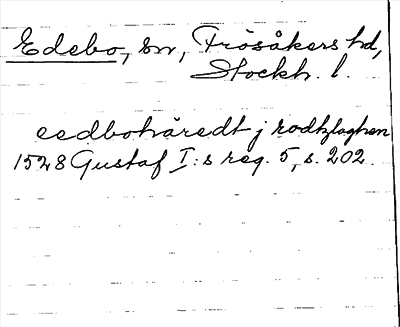 Edebo, sn, Frösåkers hd,
Stockh. l.
eedbohäredt j rodhzlaghen
1528 Gustaf I:s reg. 5, s. 202.